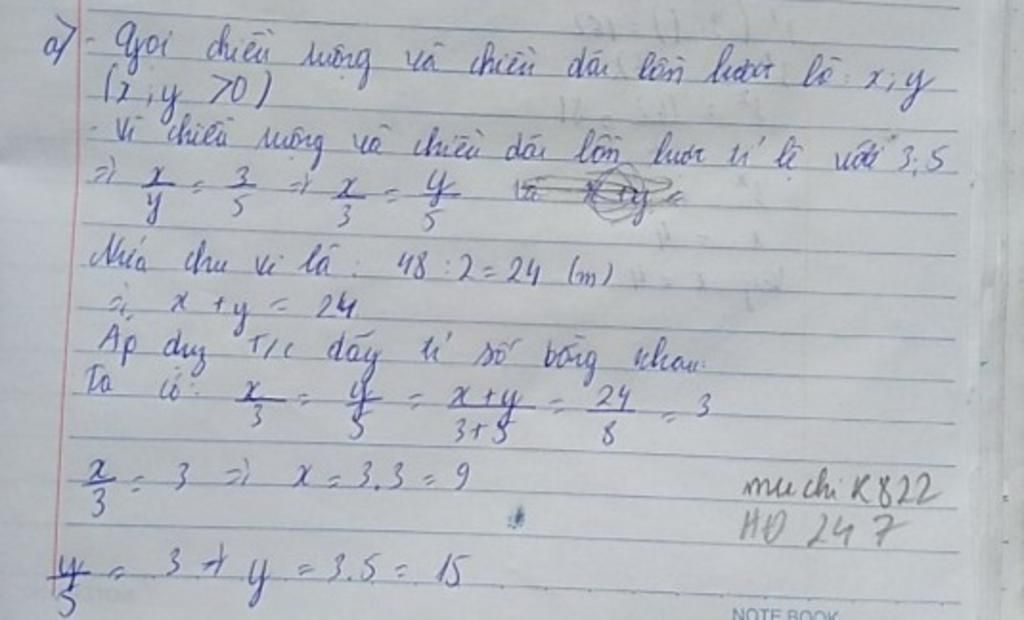 a) - Gọi chiều rộng và chiều dài lần lượt là: x; y
(x; y > 0)
- Vì chiều rộng và chiều dài lần lượt tỉ lệ với 3; 5
=> x/y = 3/5 => x/3 = y/5
Nửa chu vi là: 48 : 2 = 24 (m)
=> x + y = 24
Áp dụg T/c dãy tỉ số bằng nhau:
Ta có: x/3 = y/5 = x+y/3+5 = 24/8 = 3
x/3 = 3 => x = 3.3 = 9
muchi K822
HĐ 247
y/5 = 3 => y = 3.5 = 15
NOTE BOOK